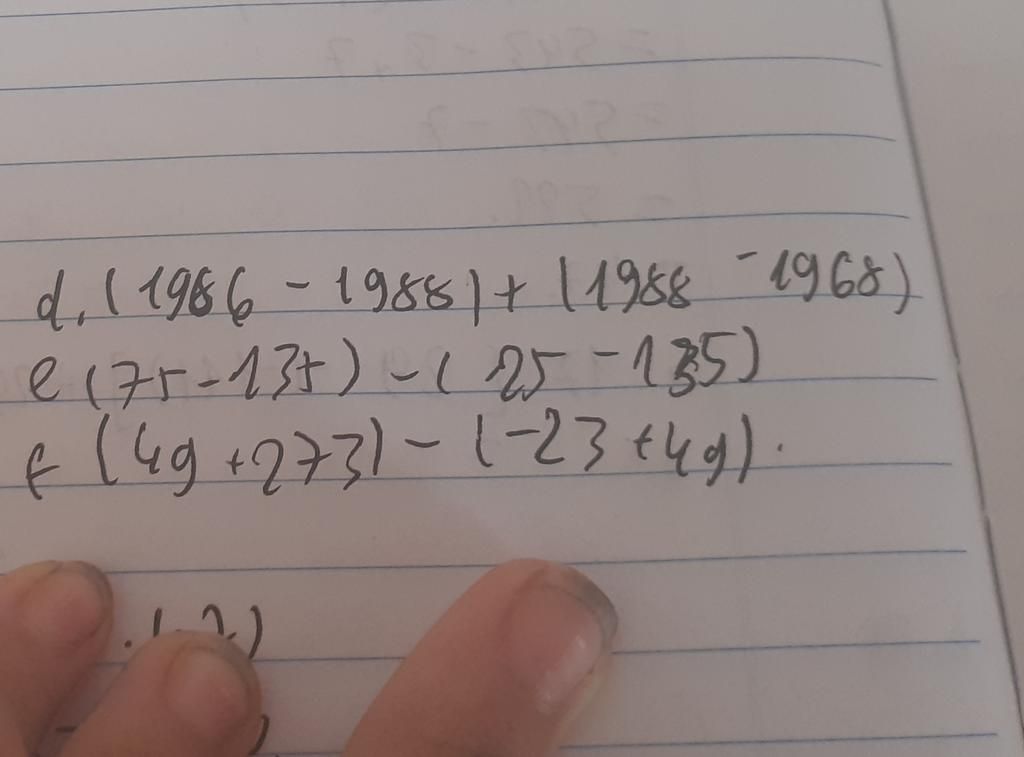 d. (1986 - 1988) + (1988 - 1968)
e (75 - 135) - ( 25 - 135)
f (49 + 273) - (-23 + 49).